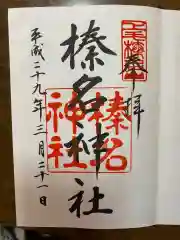 奉拝
榛名神社
榛名
神社
平成二十九年三月二十一日